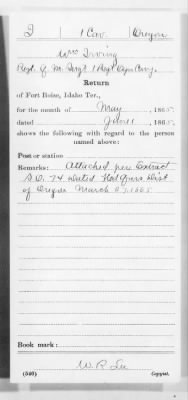 I | 1 Cav. | Oregon
Wm Irving
Regt. Q. M. Sergt 1 Regt Oregon Cavy.
Return
of Fort Boise, Idaho Ter.,
for the month of May, 1865.
dated June 1, 1865.
shows the following with regard to the person
named above:
Post or station
Remarks: Attached per Extract
S.O. 74 Dated Hd Qrs Dist
of Oregon March 27, 1865
Book mark:
W. R. Lee
(546) Copyist.